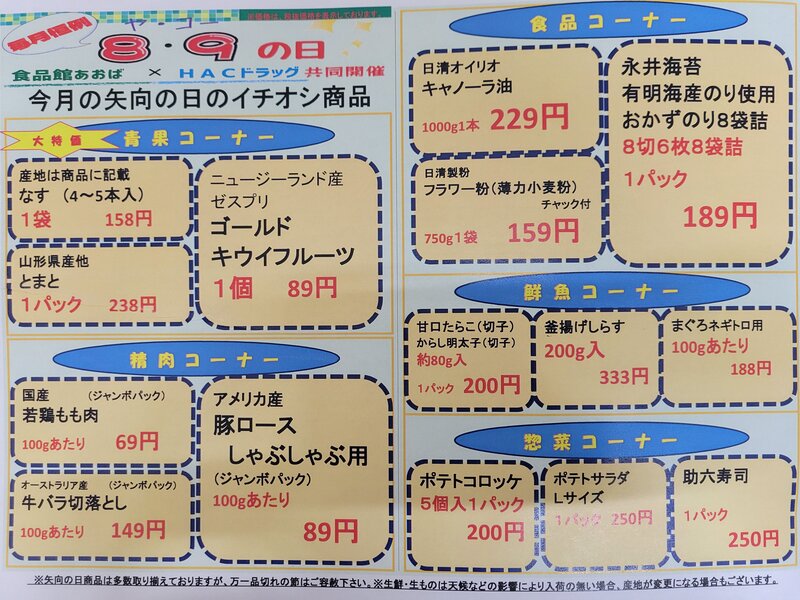 毎月恒例
や・コー
8・9の日
※価格は、税抜価格を表示しております。
食品館あおば × HACドラッグ 共同開催
今月の矢向の日のイチオシ商品
大特価
青果コーナー
産地は商品に記載
なす（4～5本入）
1袋 158円
山形県産他
とまと
1パック 238円
ニュージーランド産
ゼスプリ
ゴールド
キウイフルーツ
1個 89円
精肉コーナー
国産 （ジャンボパック）
若鶏もも肉
100gあたり 69円
オーストラリア産 （ジャンボパック）
牛バラ切落とし
100gあたり 149円
アメリカ産
豚ロース
しゃぶしゃぶ用
（ジャンボパック）
100gあたり
89円
食品コーナー
日清オイリオ
キャノーラ油
1000g1本 229円
日清製粉
フラワー粉（薄力小麦粉）
チャック付
750g1袋 159円
永井海苔
有明海産のり使用
おかずのり8袋詰
8切6枚8袋詰
1パック
189円
鮮魚コーナー
甘口たらこ（切子）
からし明太子（切子）
約80g入
1パック 200円
釜揚げしらす
200g入
333円
まぐろネギトロ用
100gあたり
188円
惣菜コーナー
ポテトコロッケ
5個入1パック
200円
ポテトサラダ
Lサイズ
1パック 250円
助六寿司
1パック
250円
※矢向の日商品は多数取り揃えておりますが、万一品切れの節はご容赦下さい。※生鮮・生ものは天候などの影響により入荷の無い場合、産地が変更になる場合もございます。